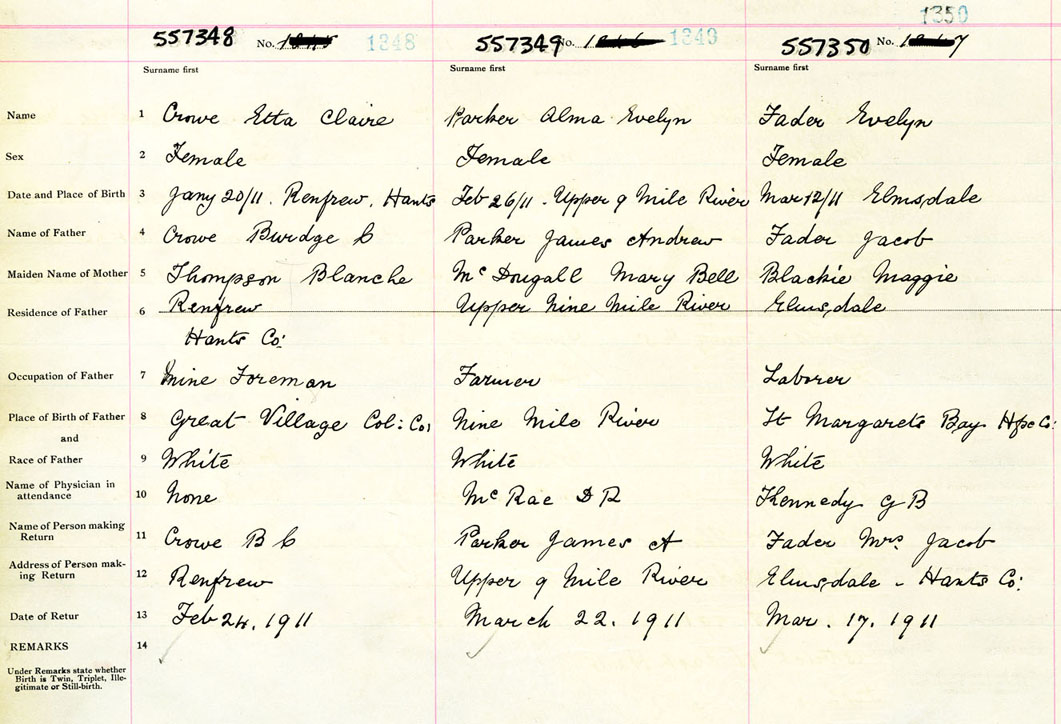 1350
557348 No. 1348
557349 No. 1349
557350 No.
Surname first Surname first Surname first
Name 1 Crowe Etta Claire Parker Alma Evelyn Fader Evelyn
Sex 2 Female Female Female
Date and Place of Birth 3 Jany 20/11. Renfrew. Hants Feb 26/11 - Upper 9 Mile River Mar 12/11 Elmsdale
Name of Father 4 Crowe Burdge C Parker James Andrew Fader Jacob
Maiden Name of Mother 5 Thompson Blanche McDougall Mary Bell Blackie Maggie
Residence of Father 6 Renfrew Upper Nine Mile River Elmsdale
Hants Co:
Occupation of Father 7 Mine Foreman Farmer Laborer
Place of Birth of Father 8 Great Village Col: Co: Nine Mile River St Margarets Bay Hfx Co:
and
Race of Father 9 White White White
Name of Physician in
attendance 10 None McRae D R Kennedy G B
Name of Person making
Return 11 Crowe B C Parker James A Fader Mrs Jacob
Address of Person mak-
ing Return 12 Renfrew Upper 9 Mile River Elmsdale - Hants Co:
Date of Retur 13 Feb 24. 1911 March 22. 1911 Mar. 17. 1911
REMARKS 14
Under Remarks state whether
Birth is Twin, Triplet, Ille-
gitimate or Still-birth.